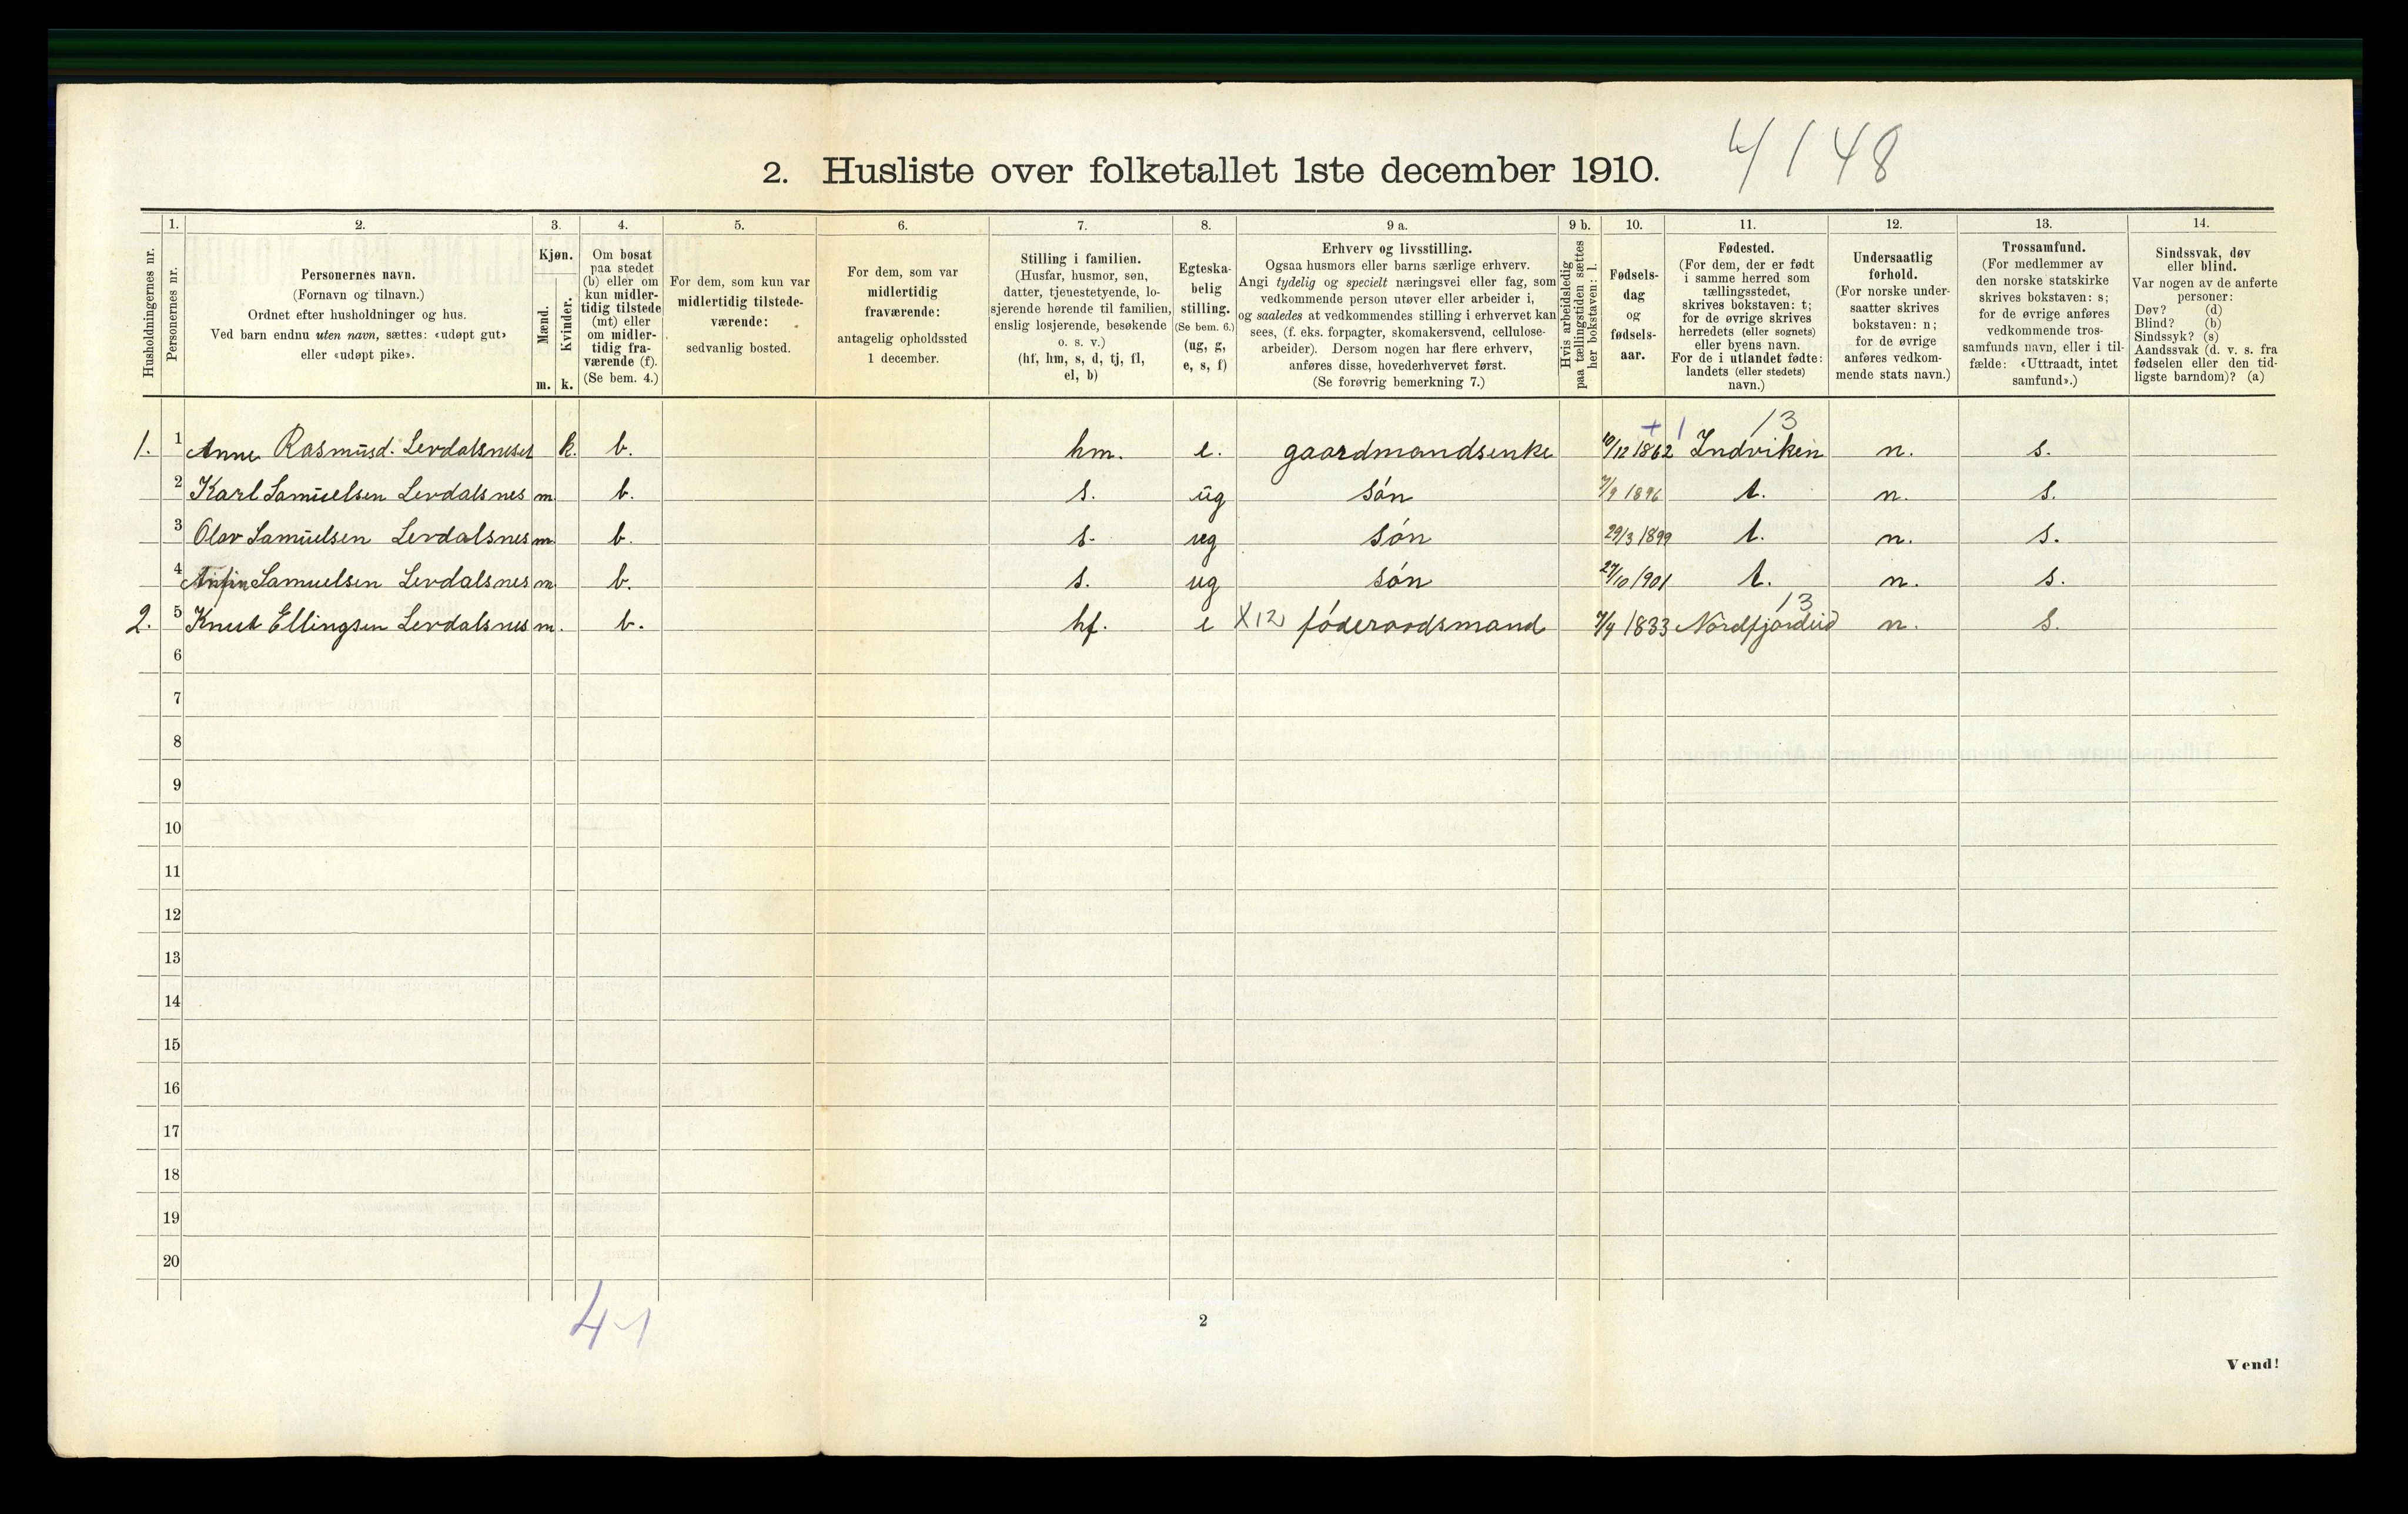 4148
2. Husliste over folketallet 1ste december 1910.
Husholdningernes nr.
1. Personernes nr.
2. Personernes navn. (Fornavn og tilnavn.) Ordnet efter husholdninger og hus. Ved barn endnu uten navn, sættes: «udøpt gut» eller «udøpt pike».
3. Kjøn. Mænd. m. Kvinder. k.
4. Om bosat paa stedet (b) eller om kun midlertidig tilstede (mt) eller om midlertidig fraværende (f). (Se bem. 4.)
5. For dem, som kun var midlertidig tilstedeværende: sedvanlig bosted.
6. For dem, som var midlertidig fraværende: antagelig opholdssted 1 december.
7. Stilling i familien. (Husfar, husmor, søn, datter, tjenestetyende, losjerende hørende til familien, enslig losjerende, besøkende o. s. v.) (hf, hm, s, d, tj, fl, el, b)
8. Egteskabelig stilling. (Se bem. 6.) (ug, g, e, s, f)
9 a. Erhverv og livsstilling. Ogsaa husmors eller barns særlige erhverv. Angi tydelig og specielt næringsvei eller fag, som vedkommende person utøver eller arbeider i, og saaledes at vedkommendes stilling i erhvervet kan sees, (f. eks. forpagter, skomakersvend, cellulosearbeider). Dersom nogen har flere erhverv, anføres disse, hovederhvervet først. (Se forøvrig bemerkning 7.)
9 b. Hvis arbeidsledig paa tællingstiden sættes her bokstaven: l.
10. Fødselsdag og fødselsaar.
11. Fødested. (For dem, der er født i samme herred som tællingsstedet, skrives bokstaven: t; for de øvrige skrives herredets (eller sognets) eller byens navn. For de i utlandet fødte: landets (eller stedets) navn.)
12. Undersaatlig forhold. (For norske undersaatter skrives bokstaven: n; for de øvrige anføres vedkommende stats navn.)
13. Trossamfund. (For medlemmer av den norske statskirke skrives bokstaven: s; for de øvrige anføres vedkommende trossamfunds navn, eller i tilfælde: «Uttraadt, intet samfund».)
14. Sindssvak, døv eller blind. Var nogen av de anførte personer: Døv? (d) Blind? (b) Sindssyk? (s) Aandssvak (d. v. s. fra fødselen eller den tidligste barndom)? (a)
1. 1 Anne Rasmusd. Levdalsneset k. b. hm. e. gaardmandsenke 10/12 1862 + 1 13 Indviken n. s.
2 Karl Samuelsen Levdalsnes m b. s. ug søn 7/9 1896 t. n. s.
3 Olav Samuelsen Levdalsnes m. b. s. ug søn 29/3 1899 t. n. s.
4 Samuelsen Levdalsnes m. b. s. ug søn 27/10 1901 t. n. s.
2. 5 Knut Ellingsen Levdalsnes m. b. hf. e X12 føderaadsmand 7/4 1833 13 Nordfjordeid n. s.
6
7
8
9
10
11
12
13
14
15
16
17
18
19
20
4-1
2
Vend!